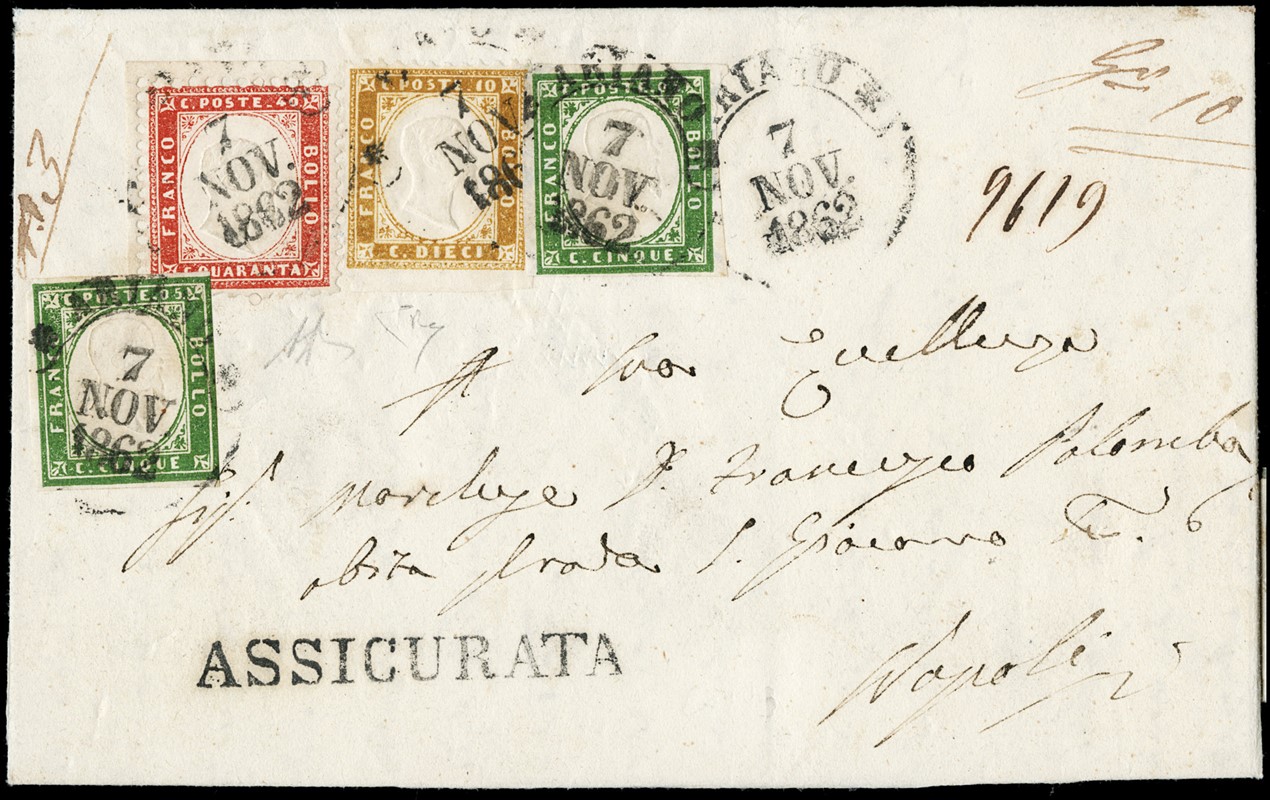 C. POSTE. 40
FRANCO
BOLLO
C. QUARANTA
7
NOV.
1862
C. POSTE. 10
FRANCO
BOLLO
C. DIECI
7
NOV.
186
ARIANO
C. POSTE
FRANCO
BOLLO
C. CINQUE
7
NOV.
1862
ARIANO
7
NOV.
1862
10
9619
C. POSTE. 05
FRANCO
BOLLO
C. CINQUE
7
NOV
1862
A Sua Eccellenza
Marchese D. Francesco Palomba
abita strada S. Giacomo 6
ASSICURATA
Napoli